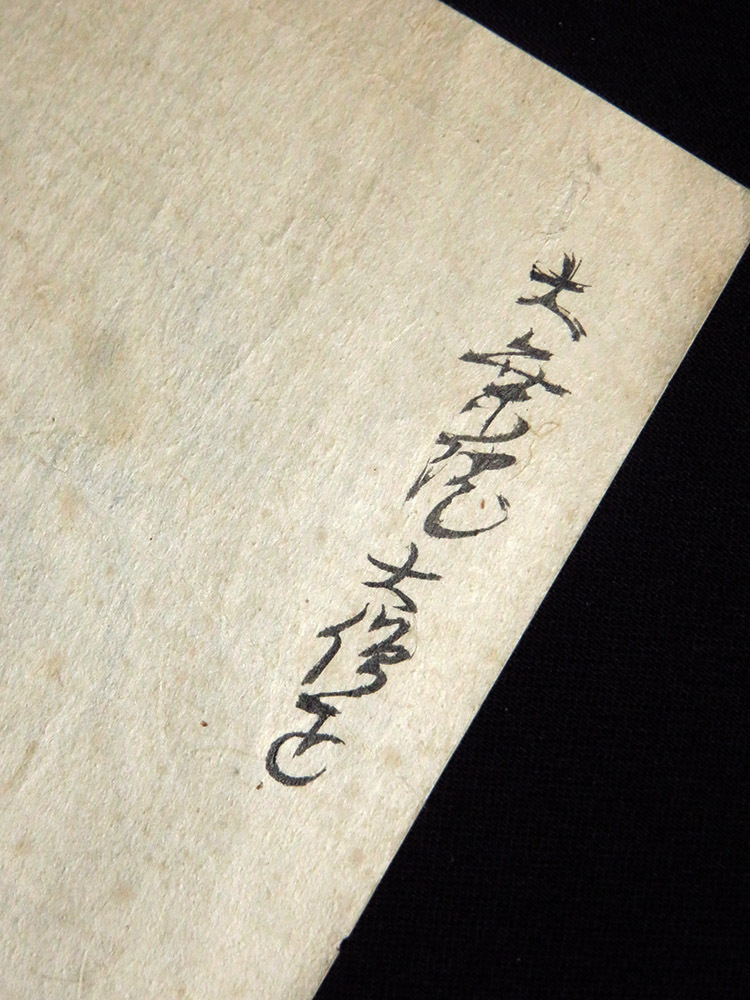 大乗院大僧正